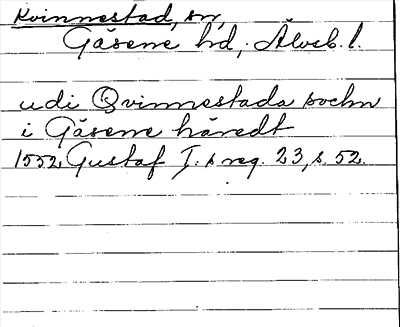 Kvinnestad, sn,
Gäsene hd, Älvsb. l.
udi Qvinnestada sochn
i Gäsene häredt
1552 Gustaf I:s reg. 23, s. 52.